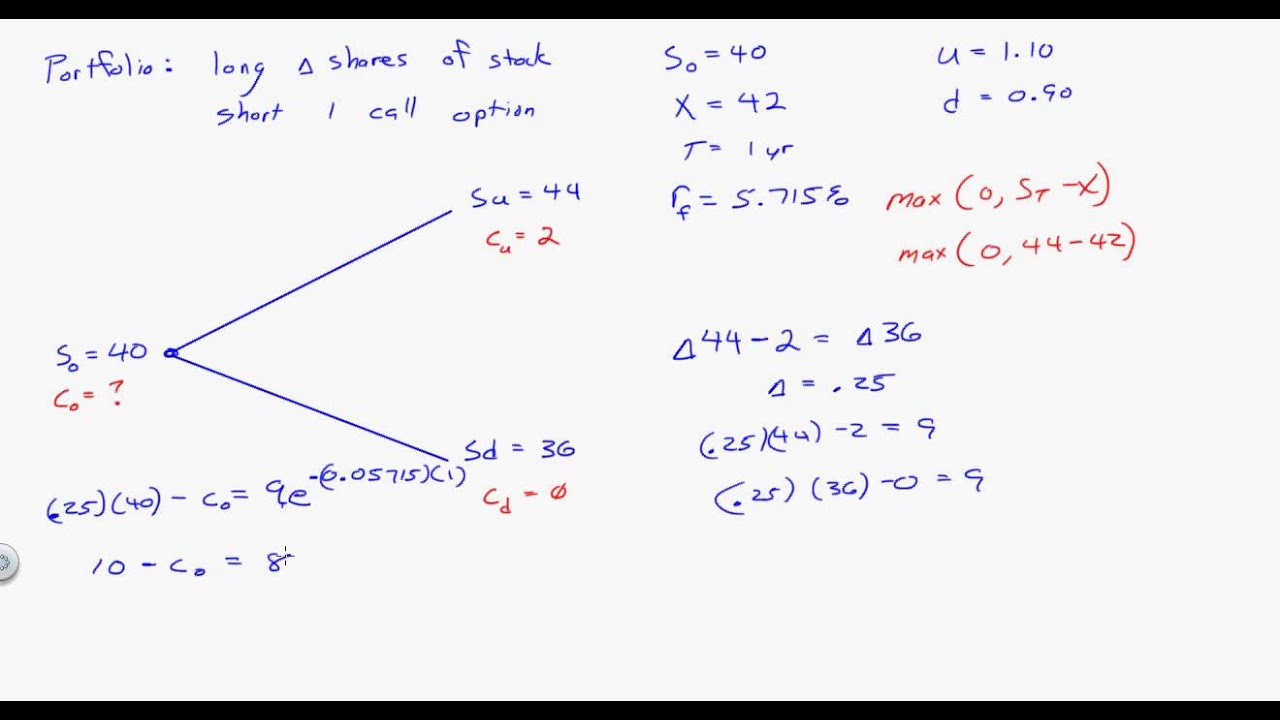 Portfolio: long Δ shares of stock
short 1 call option
S₀ = 40
X = 42
T = 1 yr
r_f = 5.715%
u = 1.10
d = 0.90
max (0, S_T - X)
max (0, 44 - 42)
Su = 44
C_u = 2
S₀ = 40
C₀ = ?
Sd = 36
C_d = ø
Δ44 - 2 = Δ36
Δ = .25
(.25)(44) - 2 = 9
(.25) (36) - 0 = 9
(.25)(40) - C₀ = 9e^-(0.05715)(1)
10 - C₀ = 8